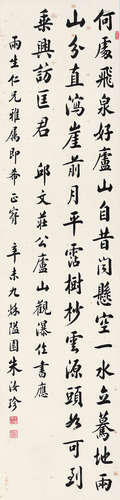 何處飛泉好廬山自昔聞懸空一水立驀地兩
山分直瀉崖前月平霑樹杪雲源頭如可到
乘興訪匡君 邱文莊公廬山觀瀑佳書應
雨生仁兄雅屬即希正窾 辛未九秋隘園朱汝珍